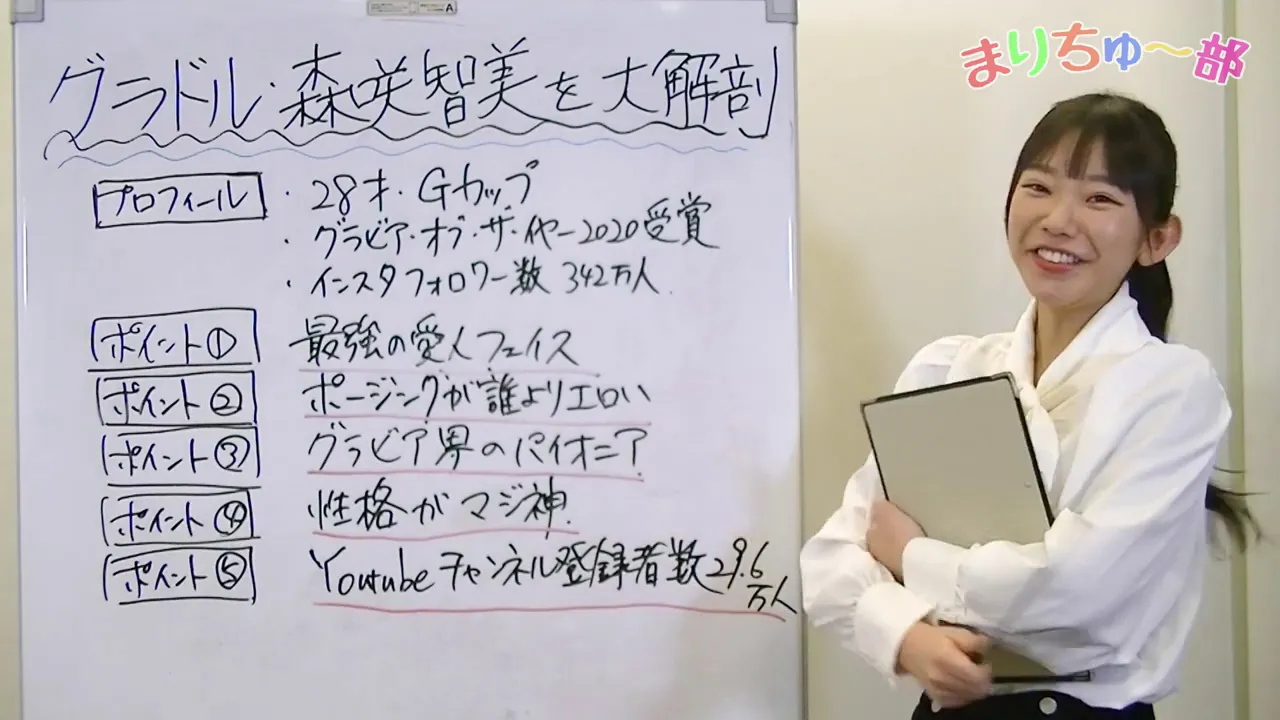 まりちゅ〜部
グラドル・森咲智美を大解剖
プロフィール ・28才・Gカップ
・グラビア・オブ・ザ・イヤー2020受賞
・インスタフォロワー数 342万人
ポイント① 最強の愛人フェイス
ポイント② ポージングが誰よりエロい
ポイント③ グラビア界のパイオニア
ポイント④ 性格がマジ神
ポイント⑤ Youtubeチャンネル登録者数29.6万人
A